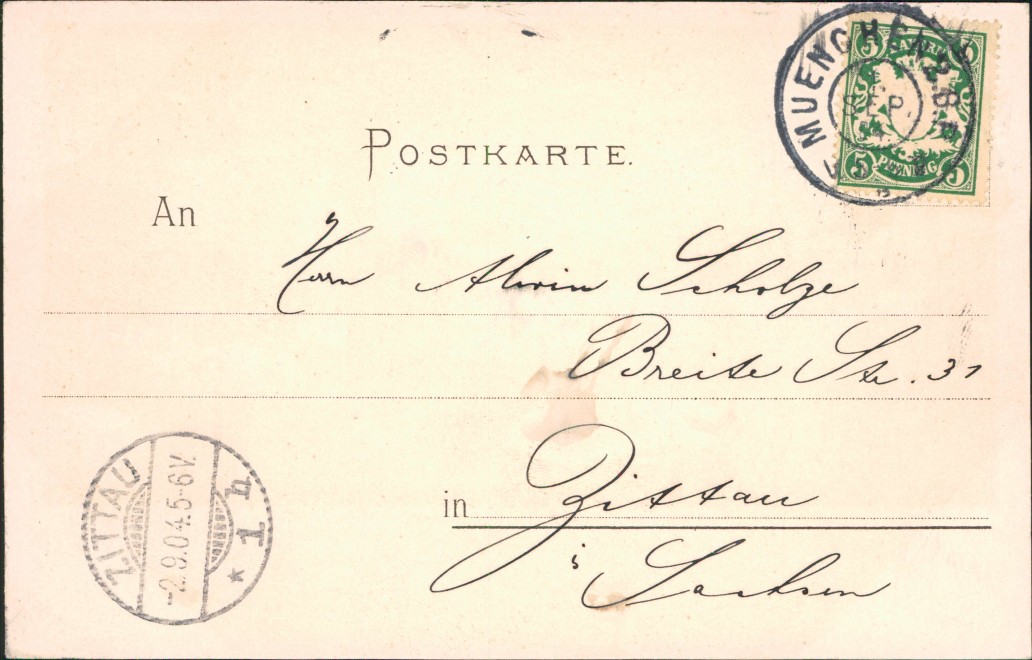 POSTKARTE.
An
Herrn Alwin Scholze
Breite Str. 31
in Zittau
i Sachsen
MUENCHEN 2 B.P.
SEP.
04
5 BAYERN 5
5 PFENNIG 5
ZITTAU
-2.9.04.5-6V.
* 1 h